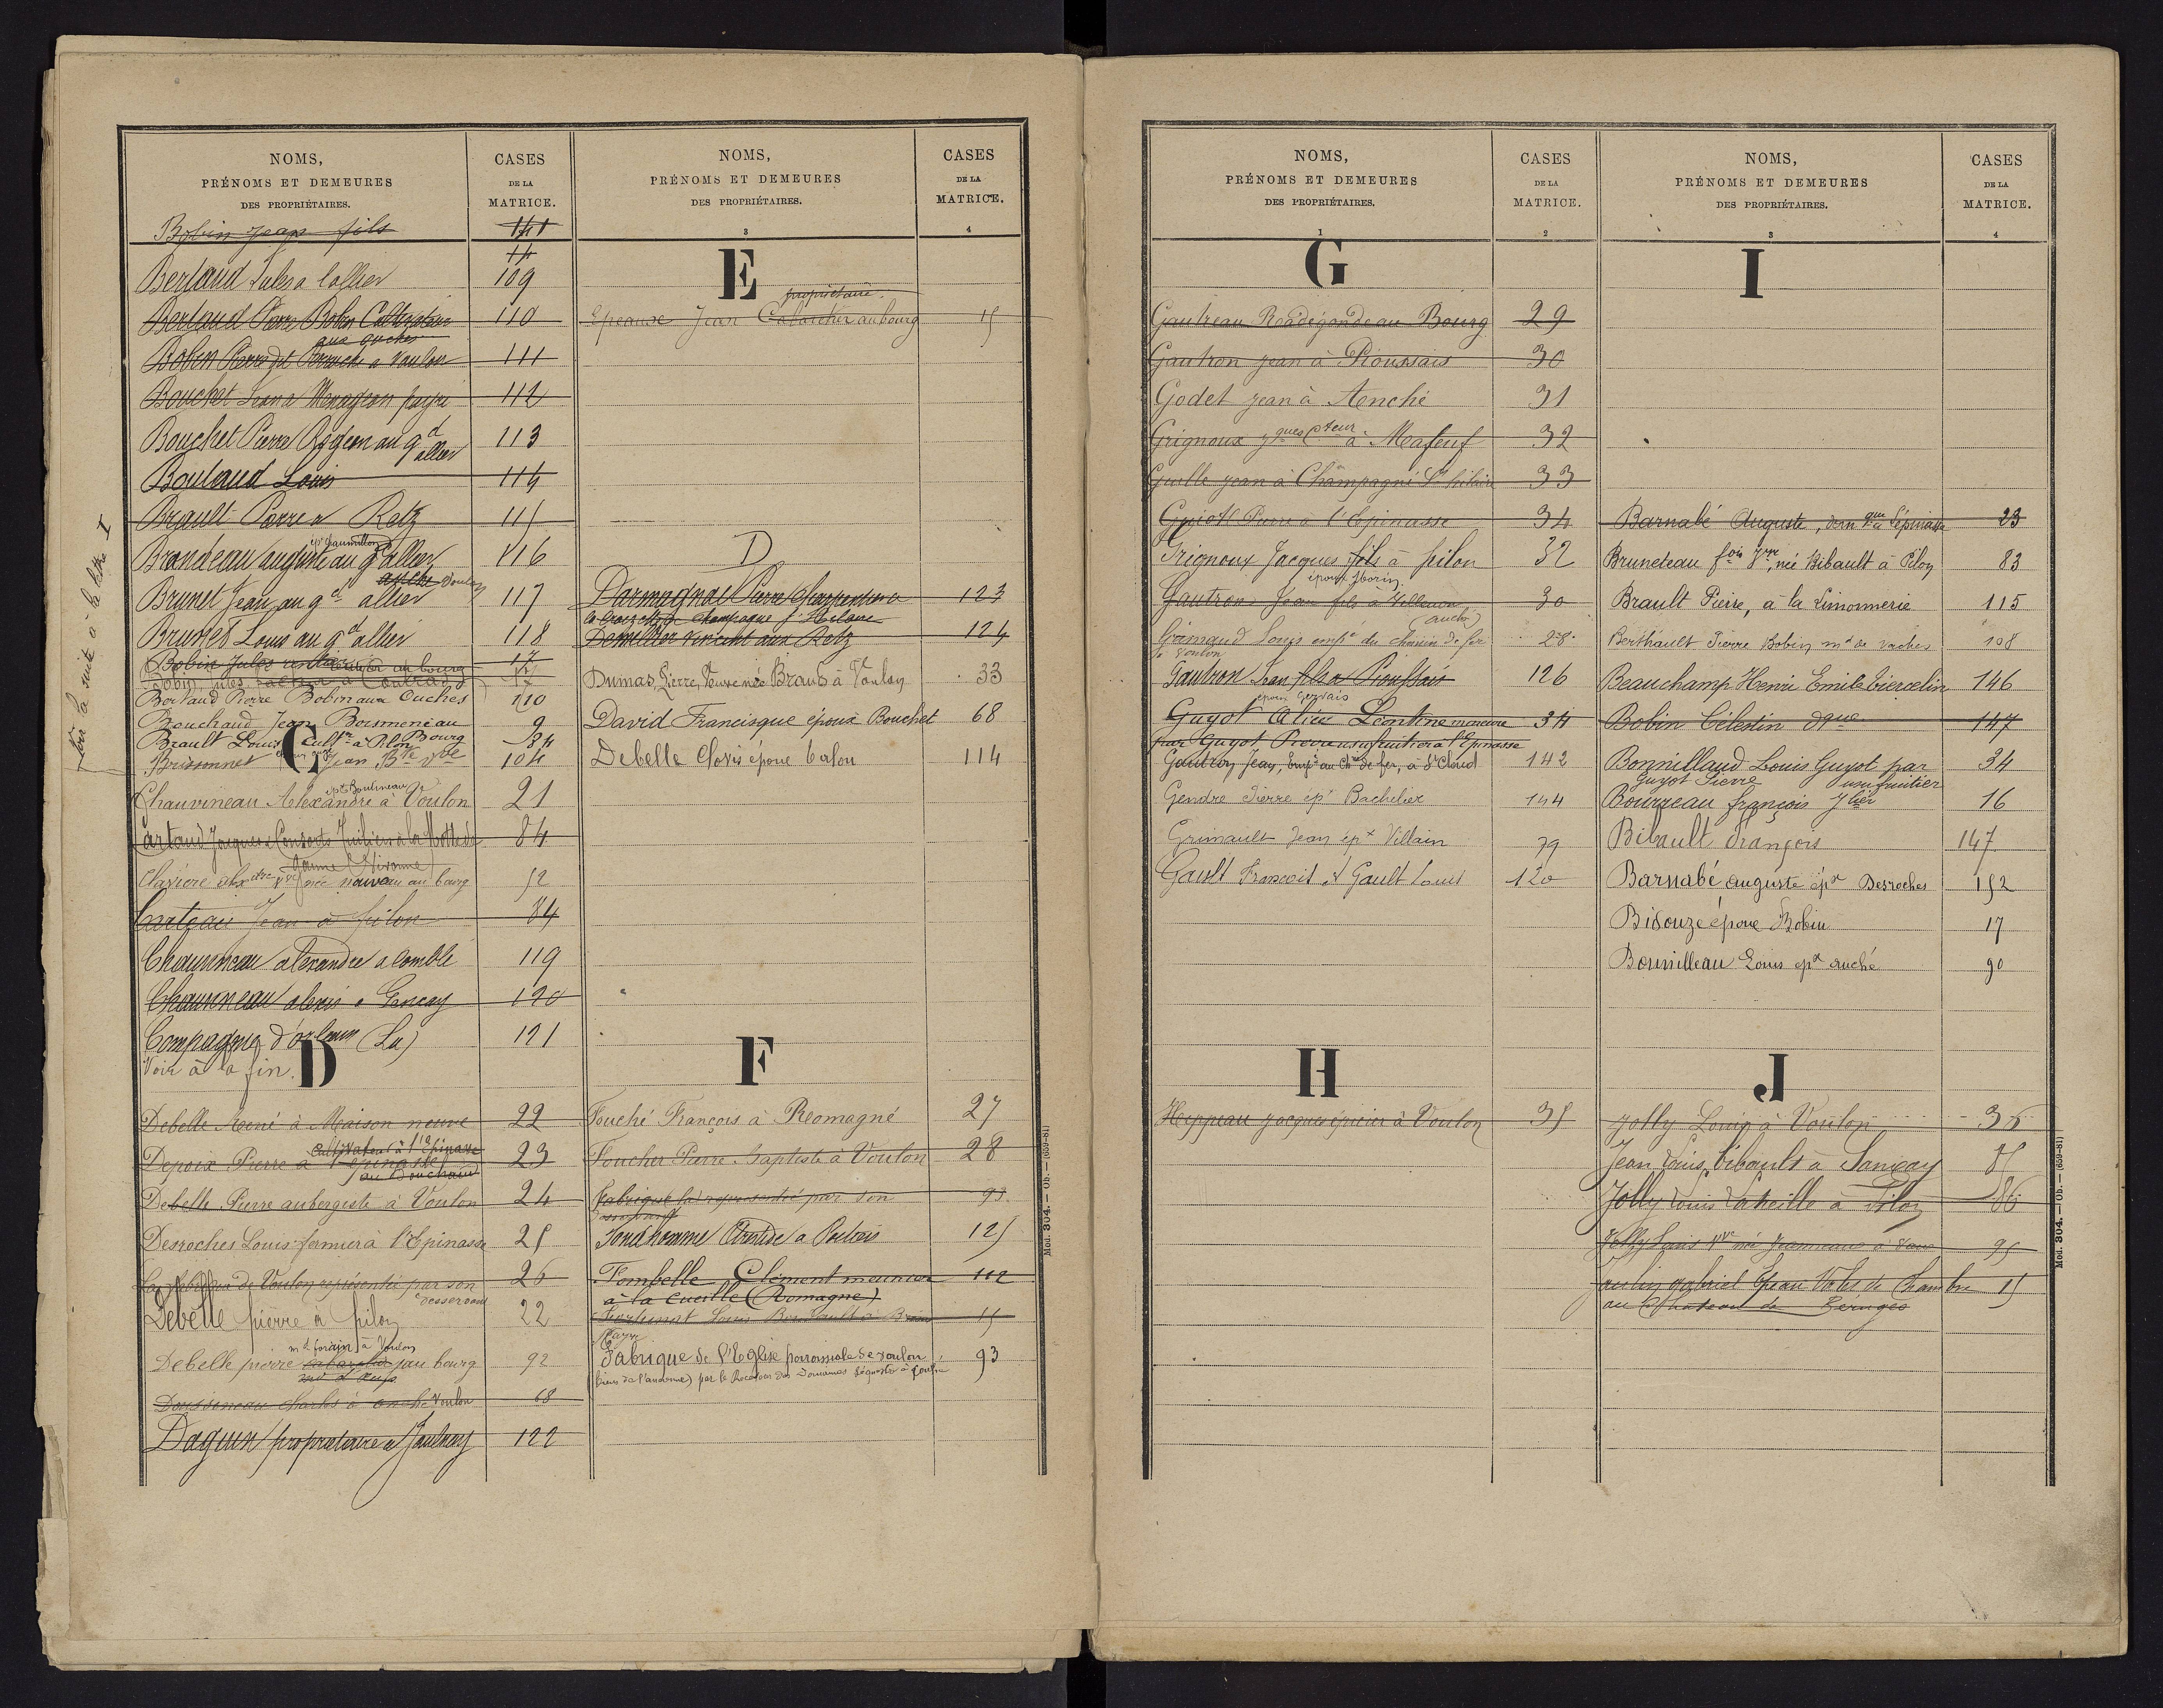 NOMS,
PRÉNOMS ET DEMEURES
DES PROPRIÉTAIRES.
CASES
DE LA
MATRICE.
Bobin Jean fils 141
14
Bertaud Jules a lallier 109
Bertaud Pierre Bobin Cultivateur 110
aux ouches
Bobin Pierre dit a Voulon 111
Bouchet Jean a Menageon 112
Bouchet Pierre au gd allier 113
Boulaud Louis 114
Brault Pierre a Retz 115
Brandeau auguste au gd allier 116
Brunet Jean au gd allier Voulon 117
Brunet Louis au gd allier 118
Bobin Jules rentier au bourg 17
Bobin Jules 17
Bertaud Pierre Bobin aux Ouches 110
Bouchaud Jean Boismeneau 9
Bourg
Brault Louis cultr à Pilon 34
Brissonnet Jean Bte 104
voir la suite à la lettre I
C
ép. Boulineau
Chauvineau Alexandre à Voulon 21
Cartaud Jacques Consorts à la Motte 84
Clavière née au bourg 52
Carteau Jean à pilon 84
Chauvineau alexandre a Comblé 119
Chauvineau alexis a Gencay 120
Compagnie d'orleans (La) 121
Voir à la fin.
D
Debelle René à Maison neuve 22
Cultivateur à l'Epinasse
Depoix Pierre à l'Epinasse 23
Debelle Pierre aubergiste à Voulon 24
Desroches Louis fermier à l'Epinasse 25
La fabrique de Voulon représentée par son 26
desservant
Debelle pierre à pilon 22
md forain à Voulon
Debelle pierre cabaretier au bourg 92
Charles à anché Voulon 68
Daguin propriétaire a Jaulnay 122
NOMS,
PRÉNOMS ET DEMEURES
DES PROPRIÉTAIRES.
3
CASES
DE LA
MATRICE.
4
E
propriétaire
Epeause Jean Cabaretier au bourg 15
D
Darmagnac Pierre Charpentier a 123
la Croizette de Champagné St Hilaire
Demellier Vincent aux Retz 124
Dumas, Pierre, Veuve née Brault à Voulon 33
David Francisque époux Bouchet 68
Debelle Clovis époux Calou 114
F
Fouché François à Romagné 27
Foucher Pierre Baptiste à Voulon 28
Fabrique (la) représentée par son 93
desservant
Fond'homme Aristide a Poitiers 125
Fombelle Clément meunier 112
à la Cueille (Romagne)
Louis à 15
Fabrique de l'Eglise paroissiale de Voulon 93
(biens de l'ancienne) par le Receveur des Domaines Séquestre à
Mod. 304. — Ob. — (659-81)
NOMS,
PRÉNOMS ET DEMEURES
DES PROPRIÉTAIRES.
1
CASES
DE LA
MATRICE.
2
G
Gautreau Radégonde au Bourg 29
Gautron jean à Pioussais 30
Godet jean à Anché 31
Grignoux jques cteur à Mafeuf 32
Guille jean à Champagné St hilaire 33
Guiot Pierre à l'Epinasse 34
Grignoux Jacques fils à pilon 32
Gautron Jean fils à 30
(Auché)
Grimaud Louis empé du chemin de fer 28
à Voulon
Gautron Jean fils a Pioussais 126
époux Gervais
Guyot Alice Léontine mineure 34
par Guyot Pierre usufruitier à l'Epinasse
Gautron Jean, Empé au Chn de fer, à St Cloud 142
Gendre Pierre ép. Bachelier 144
Grimault Jean épx Villain 79
Gault François & Gault Louis 120
H
Heppeau jacques épicier à Voulon 35
NOMS,
PRÉNOMS ET DEMEURES
DES PROPRIÉTAIRES.
3
CASES
DE LA
MATRICE.
4
I
Barnabé Auguste, à l'épinasse 23
Bruneteau fois Vve, née Bibault à Pilon 83
Brault Pierre, à la Limonnerie 115
Berthault Pierre Bobin md de vaches 108
Beauchamp Henri Emile Viercelin 146
Bobin Célestin dque 147
Bonnillaud Louis Guyot par 34
Guyot Pierre usufruitier
Bourreau françois 16
Bibault François 147
Barnabé auguste épx Desroches 152
Bidouze époux Bobin 17
Bonnilleau Louis épx auché 90
J
Jolly Louis à Voulon 36
Jean Louis bibault à Sanxay 85
Jolly Louis Lateille à Pilon 86
Jolly Louis Vve née Jeanneau à Vaux 95
gabriel Jean Valet de Chambre 15
au Chateau de
Mod. 304. — Ob. — (659-81)